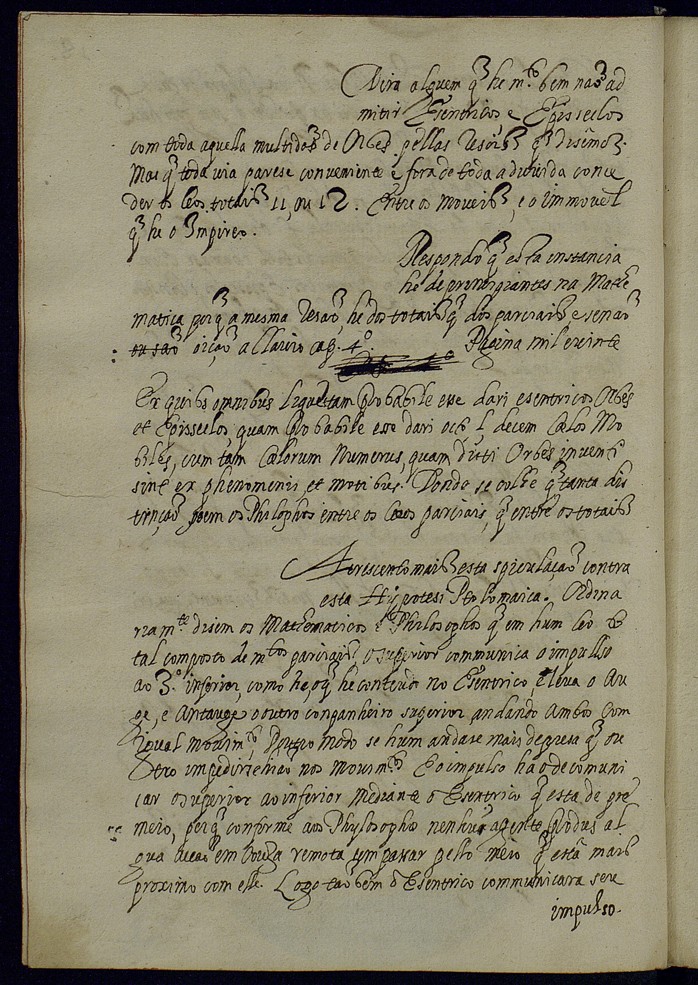 Dira alguem q̃ he m.to bem naõ ad
mitir Esentricos e Episselos
com toda aquella multidaõ de Orbes pellas resois q̃ disemos.
Mas q̃ toda uia parese conueniente e fora de toda a duuida conce
der os Ceos totais 11, ou 12. Entre os moueis, e o immouel
q̃ he o Impireo.
Respondo q̃ esta instancia
he de prinsipiantes na Mathe
matica porq̃ a mesma resaõ he dos totais q̃ dos parciais e senaõ
oiçaõ a Clavio cap. 4º Pagina mil e uinte
Ex quibus omnibus liquet tam probabile esse dari esentricos Orbes
et Episselos, quam probabile esse dari octo l decem Cœlos Mo
biles, cum tam Cœlorum Numerus, quam dicti Orbes inuenti
sint ex phenomenis, et motibus. Donde se colhe q̃ tanta dis
trinçaõ poem os Philophos entre os Ceos parciais, q̃ entre os totais
Acrescento mais esta speculaçaõ contra
esta Hypotesi Ptolomaica. Ordina
riam.te disem os Mathematicos e Philosophos q̃ em hum Ceo to
tal composto de m.tos parciais, o superior communica o impulso
ao 3.º inferior, como he, o q̃ he contendo no Esentrico, e leva o Au
ge, e Antauge o outro companheiro superior andando ambos com
igual mouim.to, Doutro modo se hum andase mais depresa q̃ ou
tro impedirsehiaõ nos mouim.tos E o impulso ha o de comuni
car o superior ao inferior mediante o Esentrico q̃ esta de per
meio, porq̃ conforme aos Phylosophos nenhum agente produs al
gua acçaõ em couza remota sem passar pello meio q̃ está mais
proximo com elle. Logo taõ bem o Esentrico communicara seu
impulso.